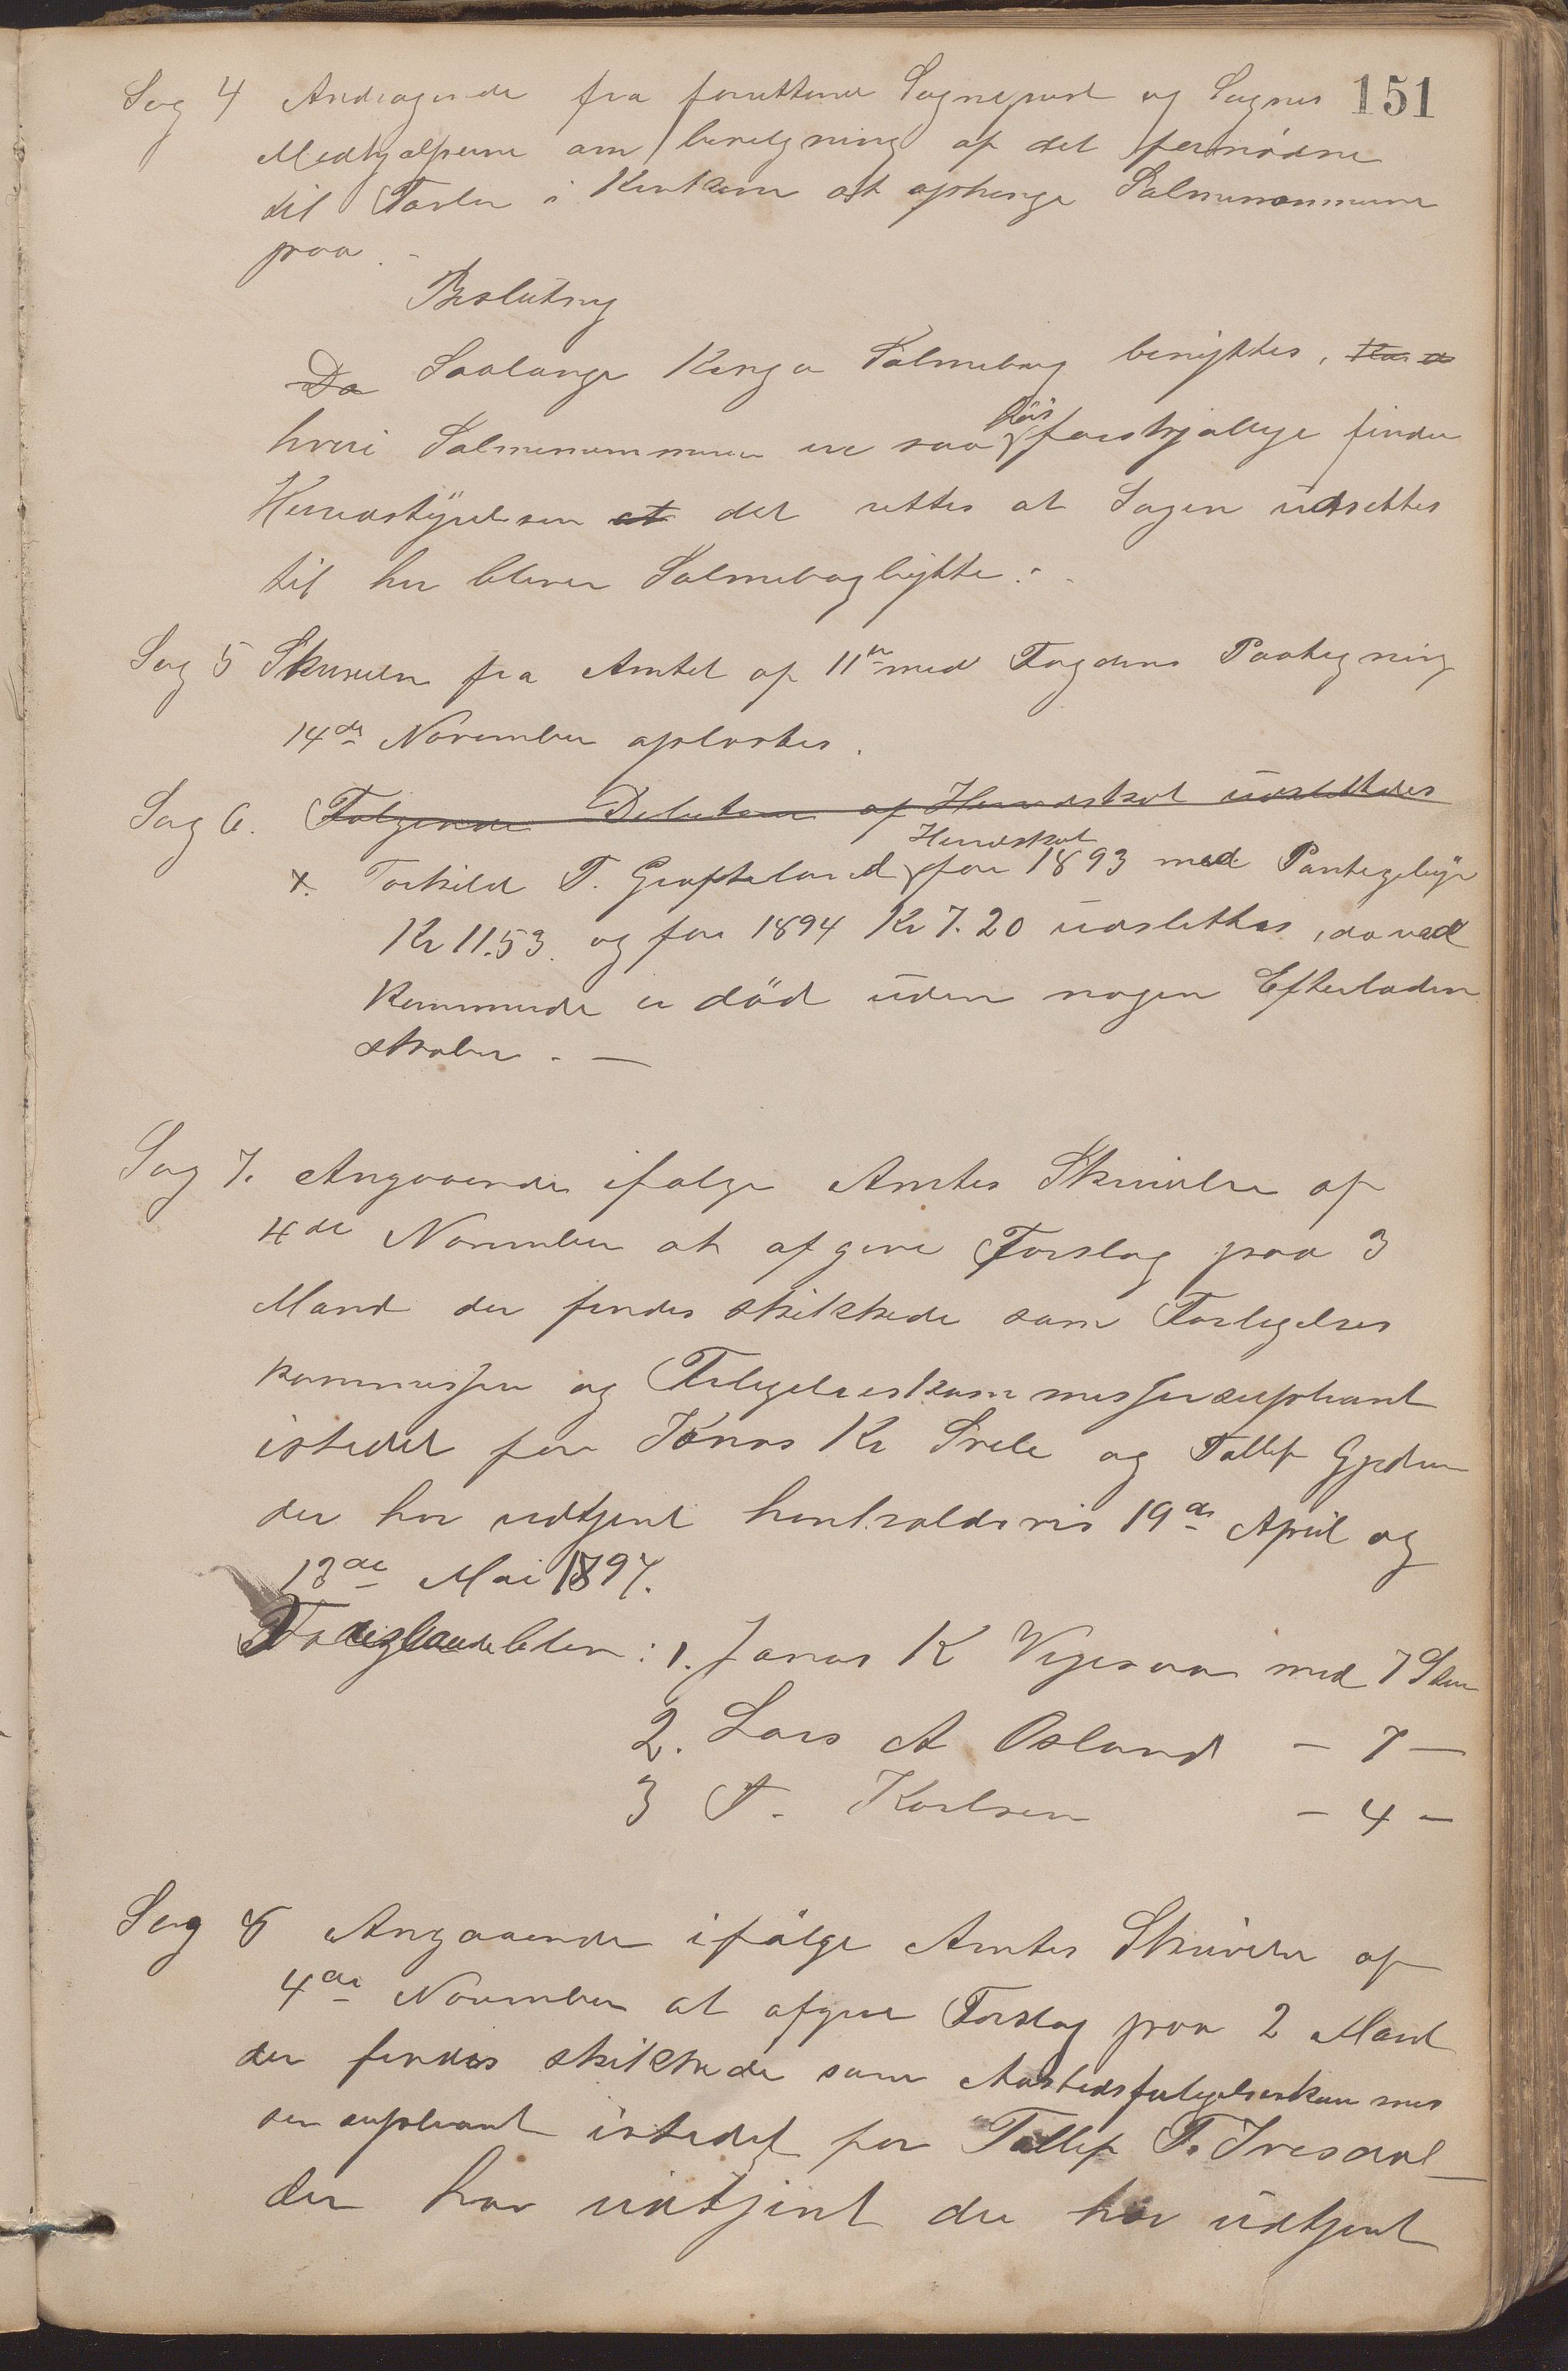 151
Sag 4 Andragende fra forrettende Sognepræst og Sognes
Medhjælperne om bevilgning af det fornødne
til Tavler i Kirkerne at ophænge Salmenummerne
paa.
Beslutning
Da Saalænge Kirkens Salmebog benyttes,
hvori Salmenummerne ere saa forskjællige finder
Herredstyrelsen at det rettes at Sagen udsættes
til her bliver Salmebogbytte. -
Sag 5 Skrivelse fra Amtet af 11te med Fogdens Paategning
14de November oplæstes.
Sag 6. Følgende Debitorer af Herredskat udslettedes
x. Torkild T. Grøfteland Herredskat for 1893 med Pantegebyr
Kr 11.53. og for 1894 Kr 7.20 udslettes, da ved
kommende er død uden nogen Efterladen
skaber. -
Sag 7. Angaaende ifølge Amtes Skrivelse af
4de November at afgive Forslag paa 3
Mænd der findes skikkede som Forligelses
kommissær og Forligelseskommissærsupleant
istedet for Jonas Kr Svele og Tollef
der har udtjent henholdsvis 19de April og
13de Mai 1897.
Foreslaaede blev: 1. Jonas K Vigesaa med 7 Stem
2. Lars A Osland - 7 -
3 T. Karlsen - 4 -
Sag 8 Angaaende ifølge Amtes Skrivelse af
4de November at afgive Forslag paa 2 Mænd
der findes skikkede som Aastedsforligelseskommis
sersupleant istedet for Tollef T. Ivesdal
der har udtjent der har udtjent